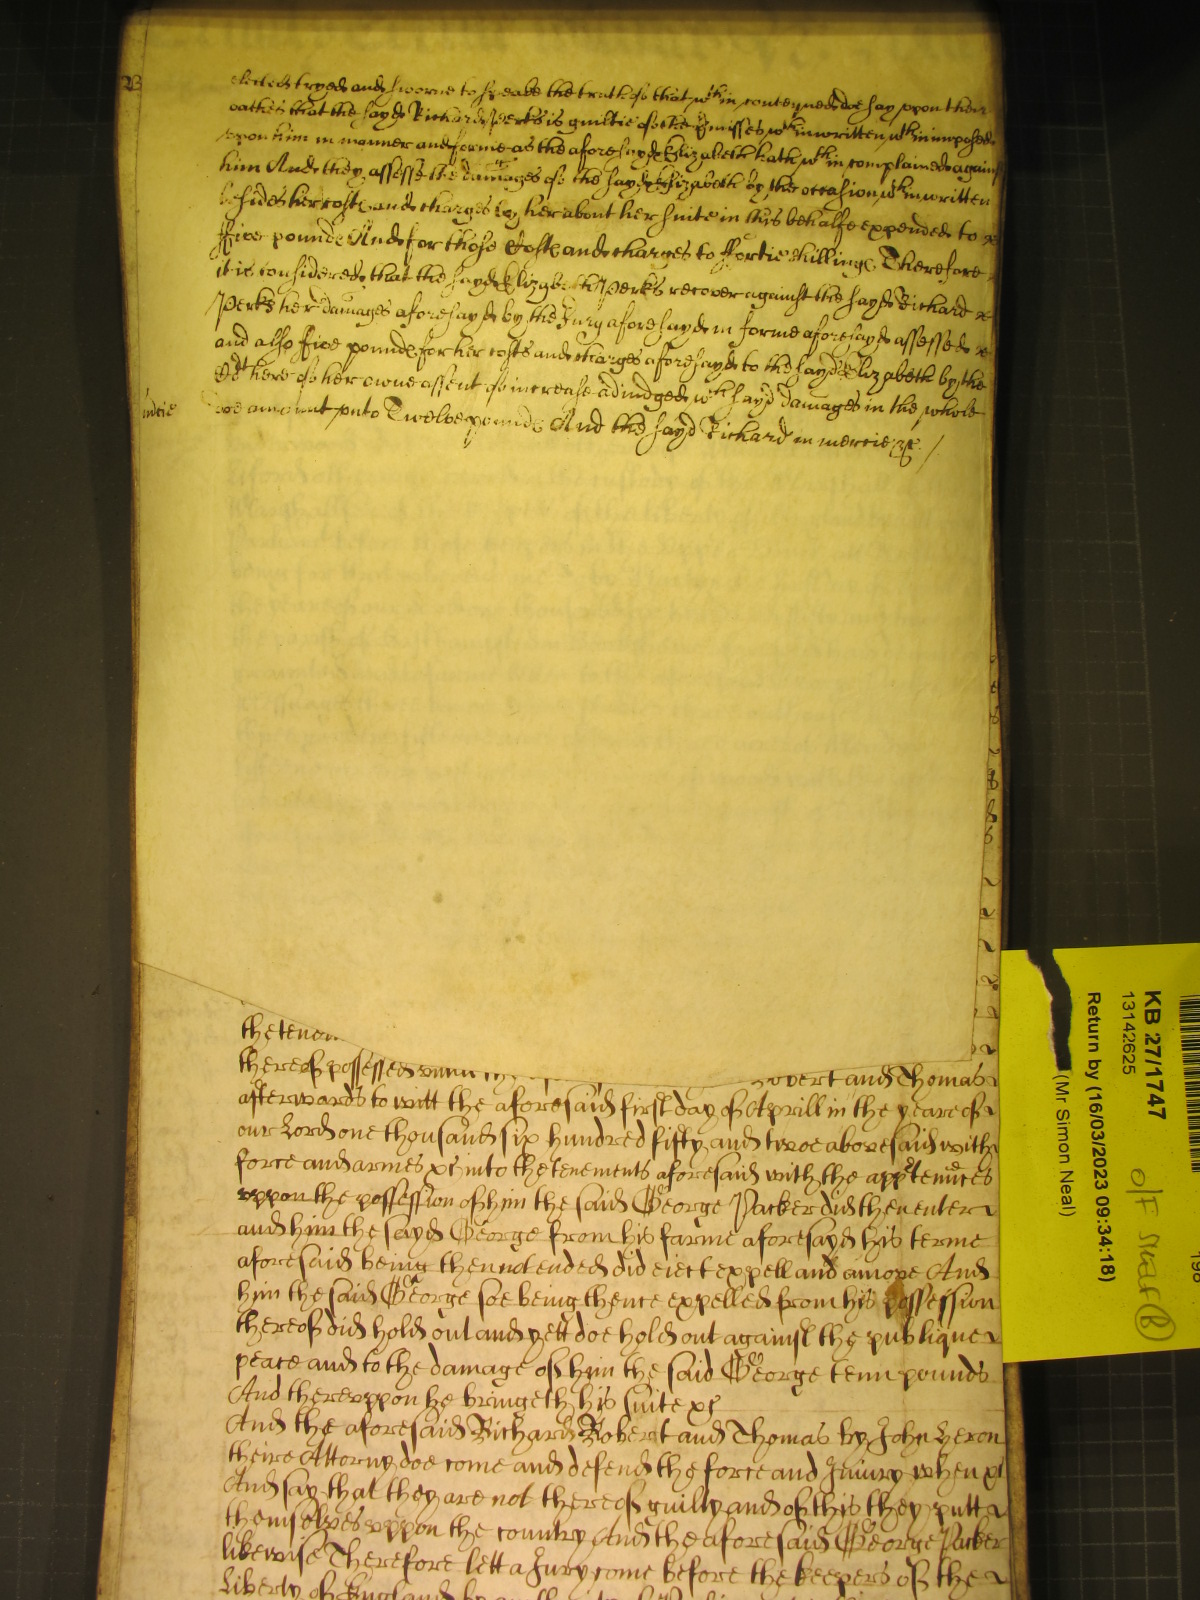 23
elected tryed and sworne to speake the truth of that wthin conteyned doe say vpon their
oathes that the sayd Richard Perks is guiltie of the p̱misses wthin written wthin imposed
vpon him in manner and forme as the aforesayd Elizabeth hath wthin complained against
him And they assesse the damages of the sayd Elizabeth by the occasion wthin written
besides her costs and charges by her about her suite in this behalfe expended to
ffive pounds And for those Costs and charges to ffortie shillings Therefore
it is considered that the sayd Elizabeth Perks recover against the sayd Richard
Perks her damages aforesayd by the Jury aforesayd in forme aforesayd assessed
and also five pounds for her costs and charges aforesayd to the sayd Elizabeth by the
Crt here of her owne assent of increase adiudged wch sayd damages in the whole
doe amount vnto Twelve pounds And the sayd Richard in mercie &c /
mercie
the tenem
thereof possessed Robert and Thomas
afterwards to witt the aforesaid first day of Aprill in the yeare of
our Lord one thousand six hundred fifty and twoe abovesaid with
force and armes &c into the tenements aforesaid with the apptenn̄ces
vppon the possession of him the said George Packer did then enter
and him the sayd George from his farme aforesayd his terme
aforesaid being then not ended did eiect expell and amove And
him the said George soe being thence expelled from his possession
thereof did hold out and yett doe hold out against the publique
peace and to the damage of him the said George tenn pounds
And therevppon he bringeth his suite &c
And the aforesaid Richard Robert and Thomas by John Heron
theire Attorny doe come and defend the force and Iniury when &c
And say that they are not thereof guilty and of this they putt
themselves vppon the country And the aforesaid George Packer
likewise Therefore lett a Jury come before the keepers of the
Liberty of England
KB 27/1747
13142625
Return by (16/03/2023 09:34:18)
(Mr Simon Neal)
O/F